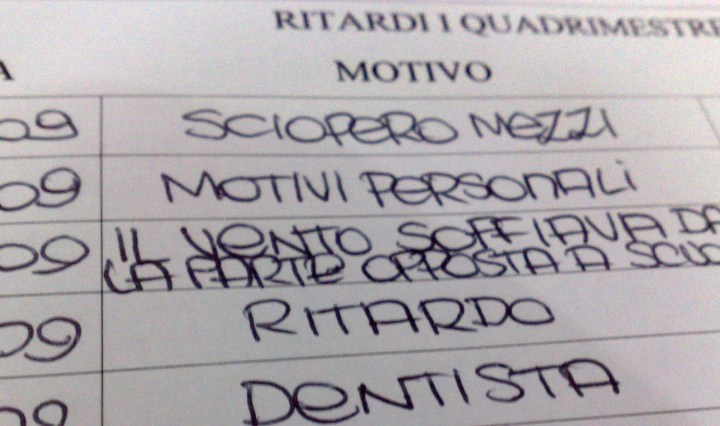 RITARDI I QUADRIMESTRE
A MOTIVO
09 SCIOPERO MEZZI
09 MOTIVI PERSONALI
09 IL VENTO SOFFIAVA DA
LA PARTE OPPOSTA A SCUO
09 RITARDO
09 DENTISTA